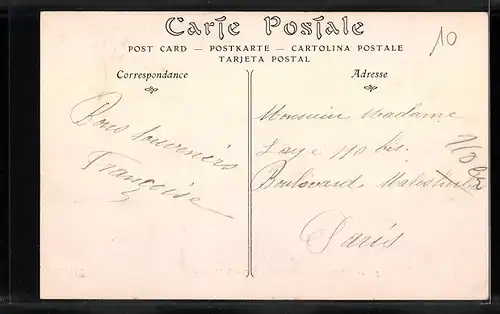 Carte Postale
POST CARD — POSTKARTE — CARTOLINA POSTALE
TARJETA POSTAL
Correspondance
Adresse
10
Bons souvenirs
Françoise
Monsieur Madame
110 bis.
Boulevard Malesherbes
Paris